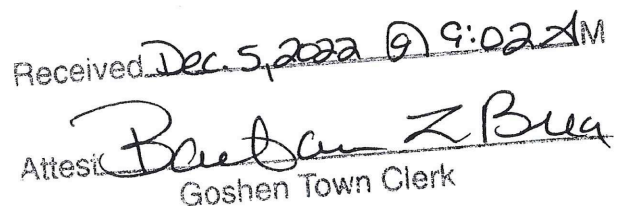 Received Dec. 5, 2022 @ 9:02 AM
Attest Barbara L Breor
Goshen Town Clerk